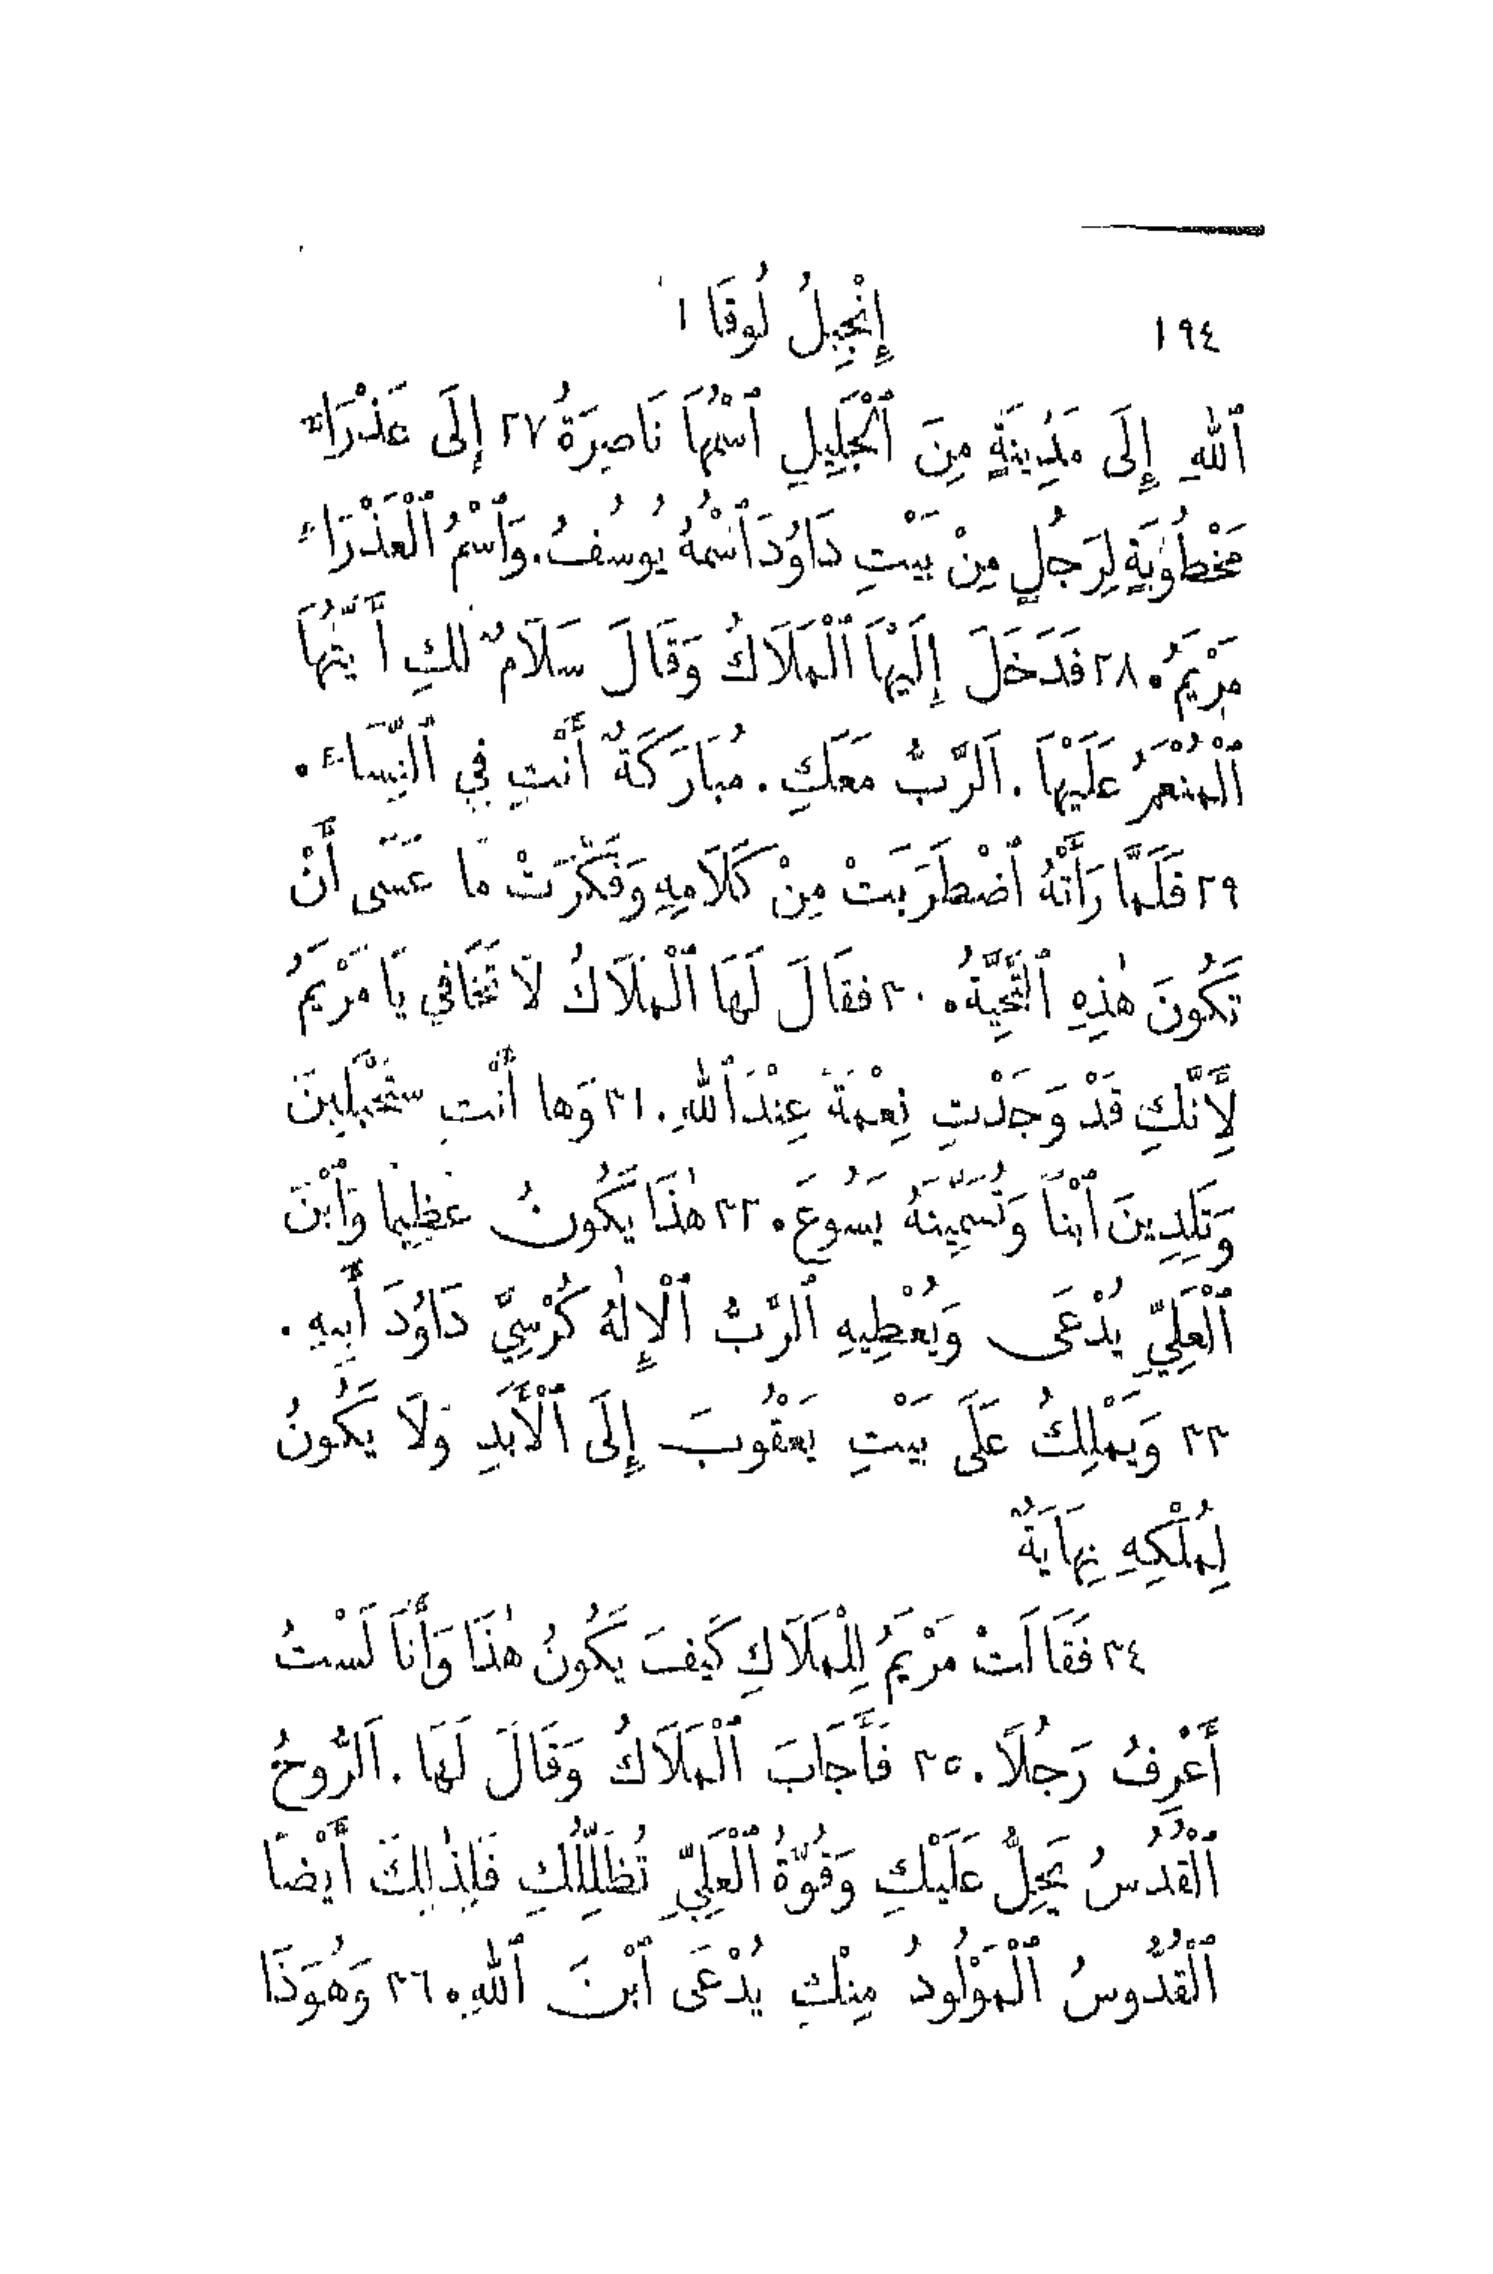 ١٩٤ إِنْجِيلُ لُوقَا ١
ٱللهِ إِلَى مَدِينَةٍ مِنَ ٱلْجَلِيلِ ٱسْمُهَا نَاصِرَةُ ٢٧ إِلَى عَذْرَاءَ
مَخْطُوبَةٍ لِرَجُلٍ مِنْ بَيْتِ دَاوُدَ ٱسْمُهُ يُوسُفُ. وَٱسْمُ ٱلْعَذْرَاءِ
مَرْيَمُ. ٢٨ فَدَخَلَ إِلَيْهَا ٱلْمَلَاكُ وَقَالَ سَلَامٌ لَكِ أَيَّتُهَا
ٱلْمُنْعَمُ عَلَيْهَا. اَلرَّبُّ مَعَكِ. مُبَارَكَةٌ أَنْتِ فِي ٱلنِّسَاءِ.
٢٩ فَلَمَّا رَأَتْهُ ٱضْطَرَبَتْ مِنْ كَلَامِهِ وَفَكَّرَتْ مَا عَسَى أَنْ
تَكُونَ هٰذِهِ ٱلتَّحِيَّةُ. ٣٠ فَقَالَ لَهَا ٱلْمَلَاكُ لَا تَخَافِي يَا مَرْيَمُ
لِأَنَّكِ قَدْ وَجَدْتِ نِعْمَةً عِنْدَ ٱللهِ. ٣١ وَهَا أَنْتِ سَتَحْبَلِينَ
وَتَلِدِينَ ٱبْنًا وَتُسَمِّينَهُ يَسُوعَ. ٣٢ هٰذَا يَكُونُ عَظِيمًا وَٱبْنَ
ٱلْعَلِيِّ يُدْعَى وَيُعْطِيهِ ٱلرَّبُّ ٱلْإِلٰهُ كُرْسِيَّ دَاوُدَ أَبِيهِ.
٣٣ وَيَمْلِكُ عَلَى بَيْتِ يَعْقُوبَ إِلَى ٱلْأَبَدِ وَلَا يَكُونُ
لِمُلْكِهِ نِهَايَةٌ
٣٤ فَقَالَتْ مَرْيَمُ لِلْمَلَاكِ كَيْفَ يَكُونُ هٰذَا وَأَنَا لَسْتُ
أَعْرِفُ رَجُلًا. ٣٥ فَأَجَابَ ٱلْمَلَاكُ وَقَالَ لَهَا. اَلرُّوحُ
ٱلْقُدُسُ يَحِلُّ عَلَيْكِ وَقُوَّةُ ٱلْعَلِيِّ تُظَلِّلُكِ فَلِذٰلِكَ أَيْضًا
ٱلْقُدُّوسُ ٱلْمَوْلُودُ مِنْكِ يُدْعَى ٱبْنَ ٱللهِ. ٣٦ وَهُوَذَا